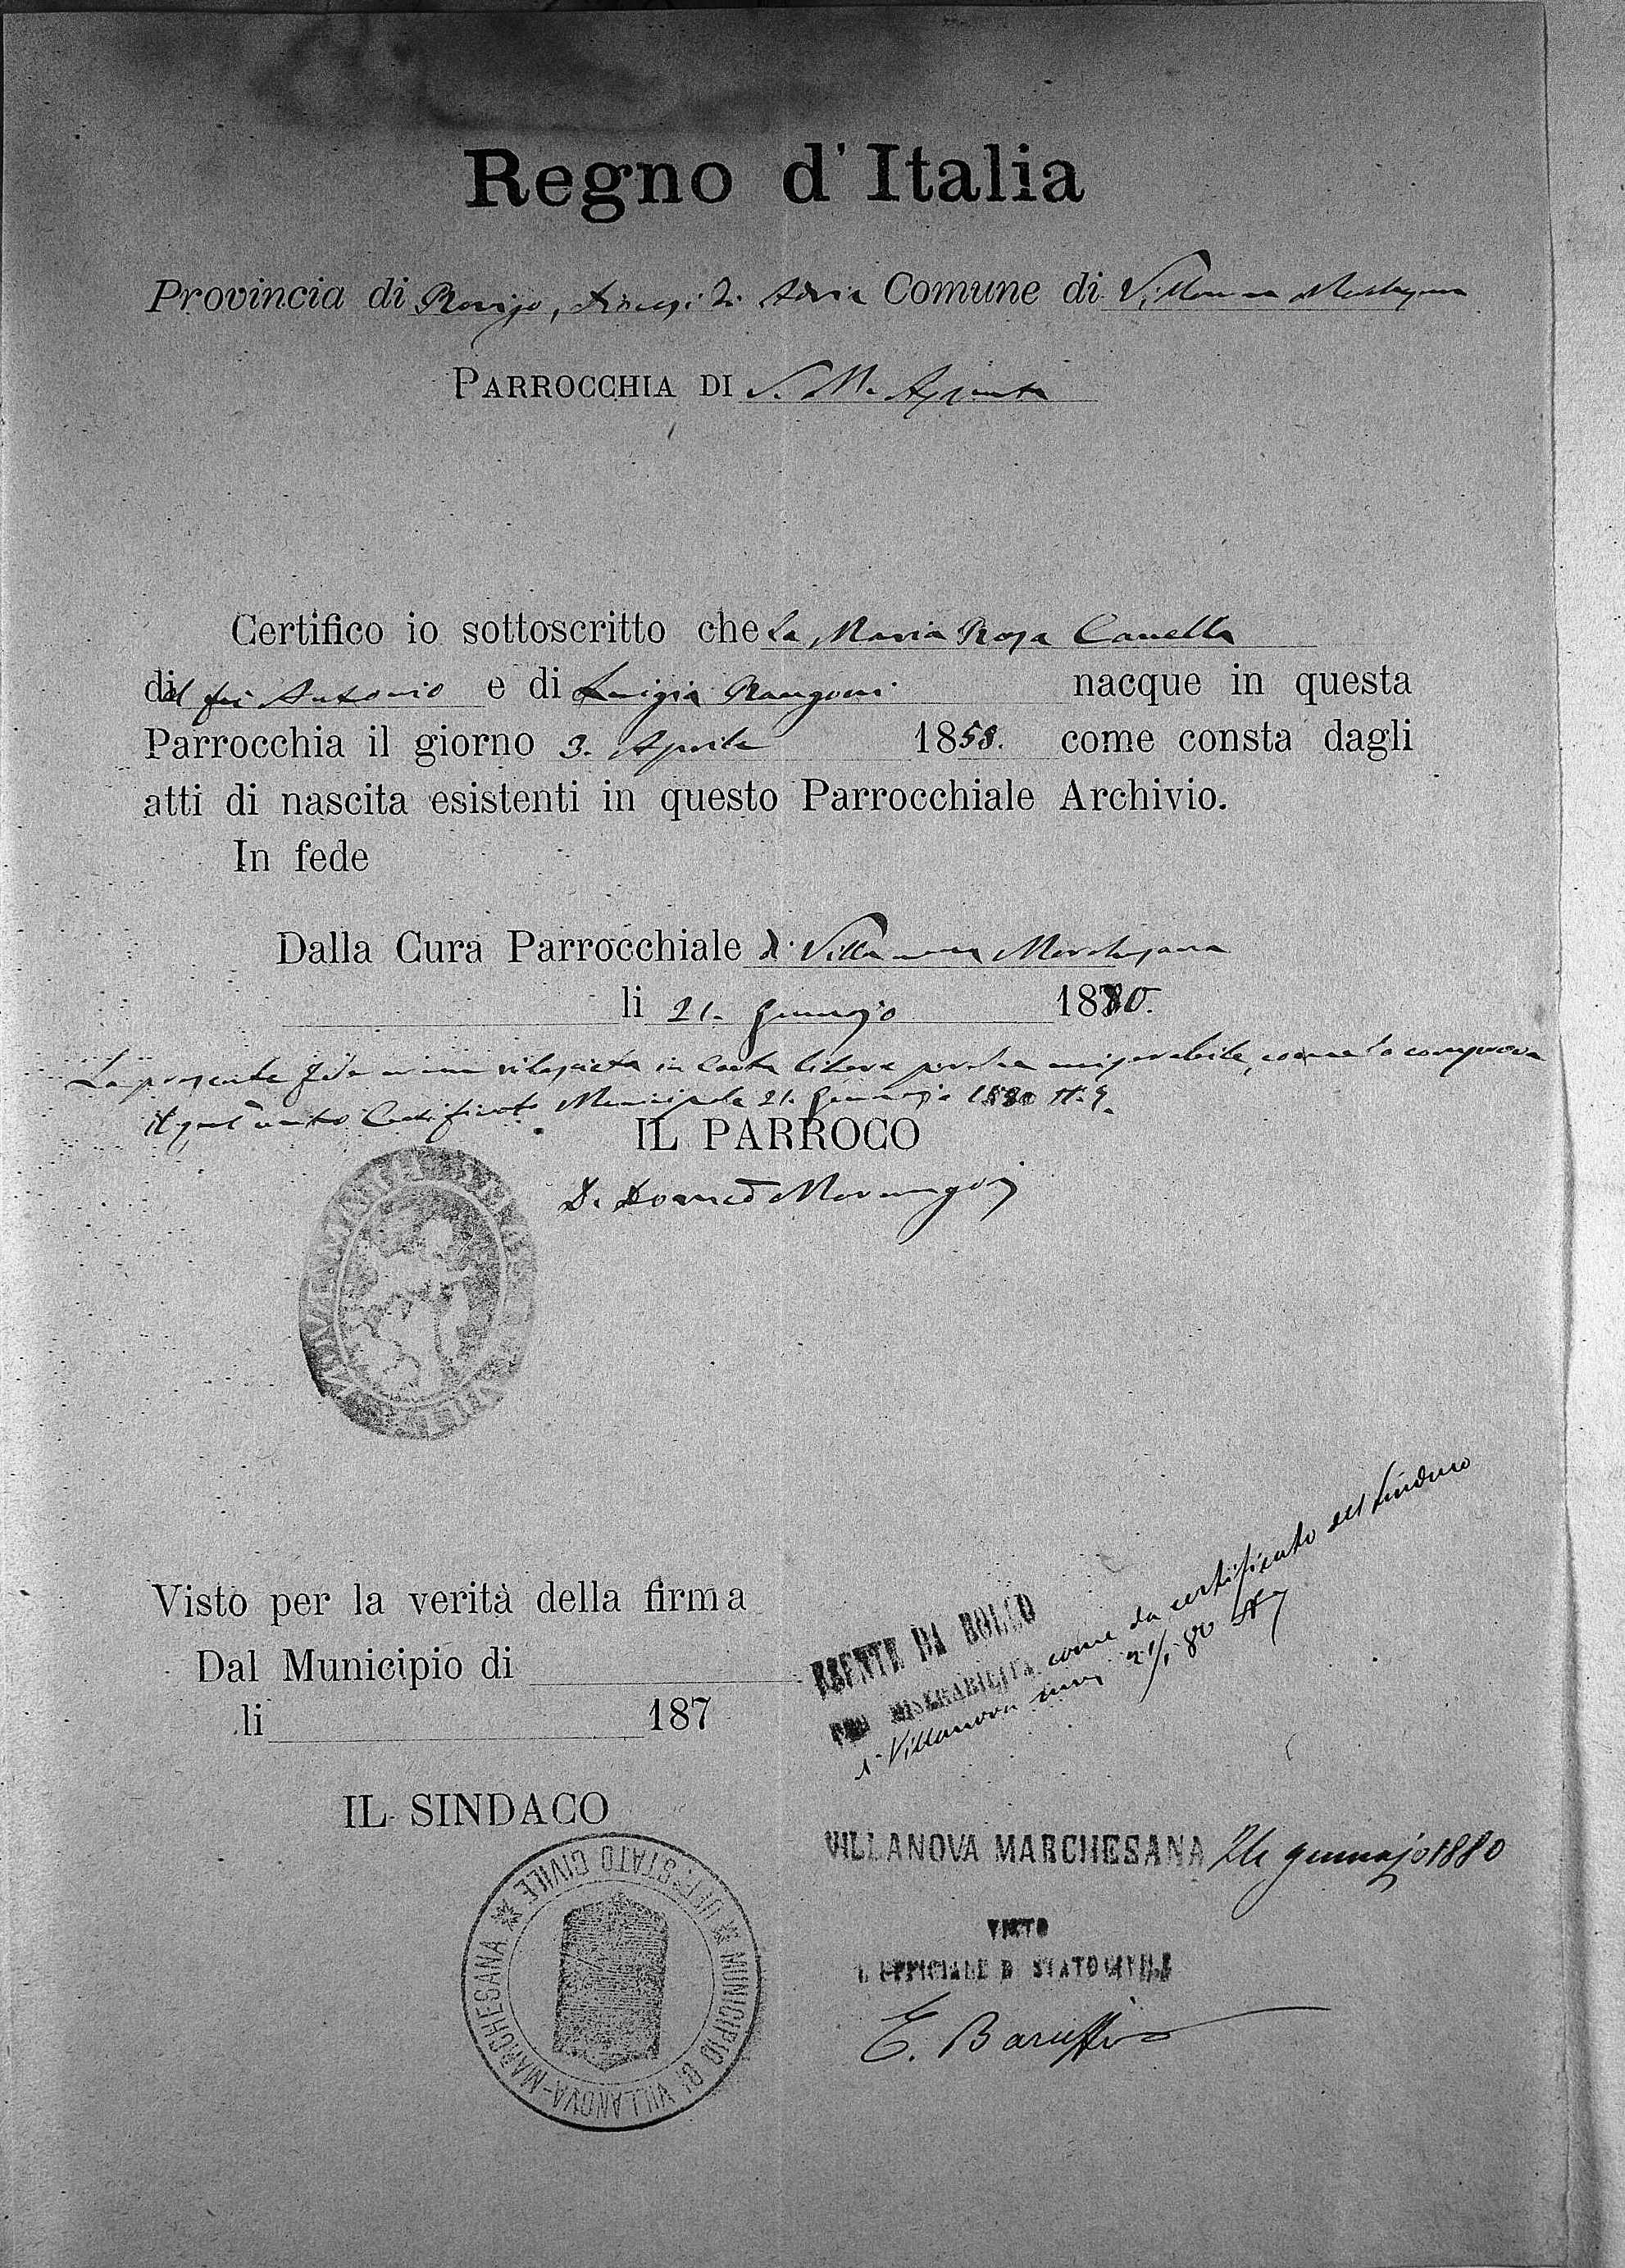 Regno d'Italia
Provincia di Rovigo, Diocesi di Adria Comune di Villanova Marchesana
PARROCCHIA DI S. M. Assunta
Certifico io sottoscritto che la Maria Rosa Canella
del fu Antonio e di Luigia Mangoni nacque in questa
Parrocchia il giorno 3. Aprile 1858. come consta dagli
atti di nascita esistenti in questo Parrocchiale Archivio.
In fede
Dalla Cura Parrocchiale di Villanova Marchesana
li 21. Gennajo 1880.
La presente fede viene rilasciata in Carta libera perche miserabile, come lo comprova
il qui unito Certificato Municipale 21. Gennajo 1880 N. 9.
IL PARROCO
D. Domco Marangoni
Visto per la verità della firma
Dal Municipio di
li 187
IL SINDACO
ESENTE DA BOLLO
PER MISERABILITA come da certificato del Sindaco
di Villanova 21/1 80 N 9
VILLANOVA MARCHESANA 24 gennajo 1880
VISTO
L'UFFICIALE D STATO CIVILE
E. Baruffi
MUNICIPIO DI VILLANOVA-MARCHESANA * UFF. STATO CIVILE *